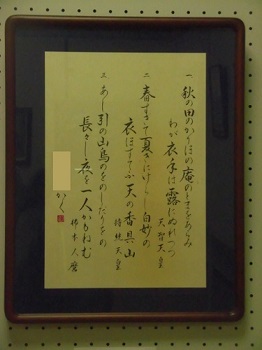 一 秋の田のかりほの庵のとまをあらみ
わが衣手は露にぬれつつ
天智天皇
二 春すぎて夏きにけらし白妙の
衣ほすてふ天の香具山
持統天皇
三 あし引の山鳥のをのしだりをの
長〱し夜を一人かもねむ
柿本人麿
かく